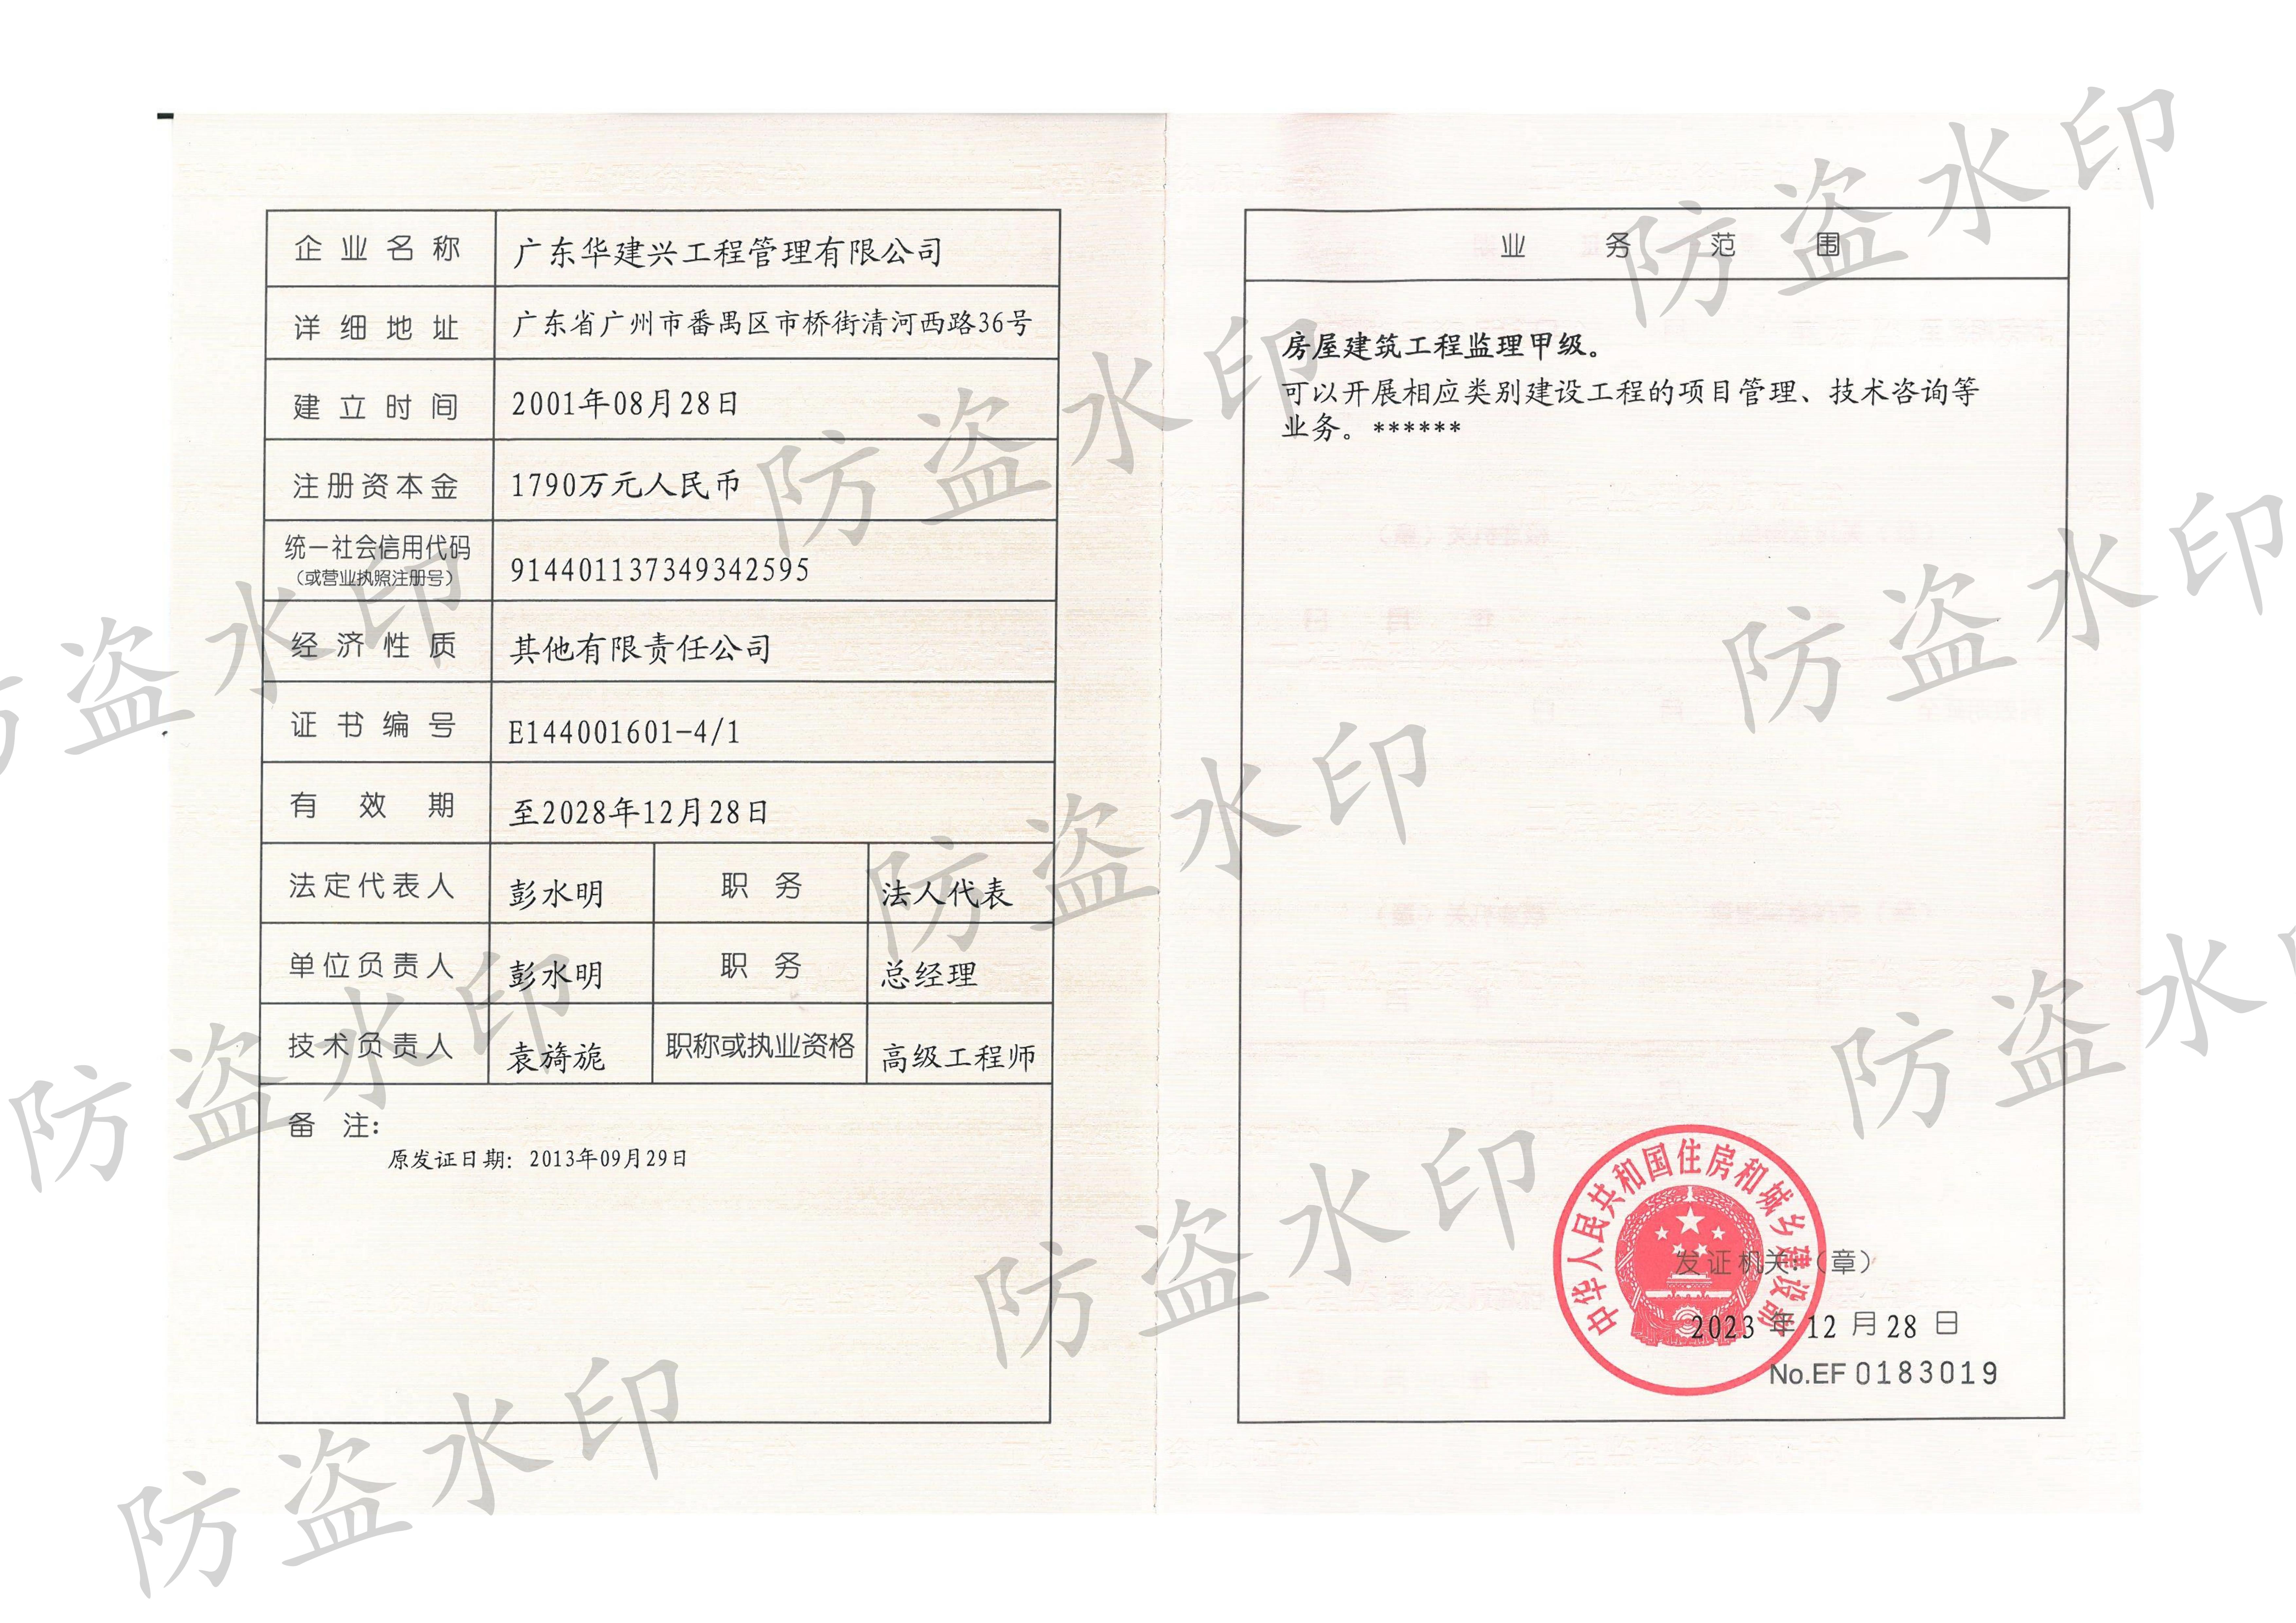 企业名称 广东华建兴工程管理有限公司
详细地址 广东省广州市番禺区市桥街清河西路36号
建立时间 2001年08月28日
注册资本金 1790万元人民币
统一社会信用代码
（或营业执照注册号） 914401137349342595
经济性质 其他有限责任公司
证书编号 E144001601-4/1
有效期 至2028年12月28日
法定代表人 彭水明 职务 法人代表
单位负责人 彭水明 职务 总经理
技术负责人 袁旖旎 职称或执业资格 高级工程师
备注：
原发证日期：2013年09月29日
业务范围
房屋建筑工程监理甲级。
可以开展相应类别建设工程的项目管理、技术咨询等
业务。******
中华人民共和国住房和城乡建设部
发证机关：（章）
2023年12月28日
No.EF 0183019
防盗水印
防盗水印
防盗水印
防盗水印
防盗水印
防盗水印
防盗水印
防盗水
防盗水印
防盗水印